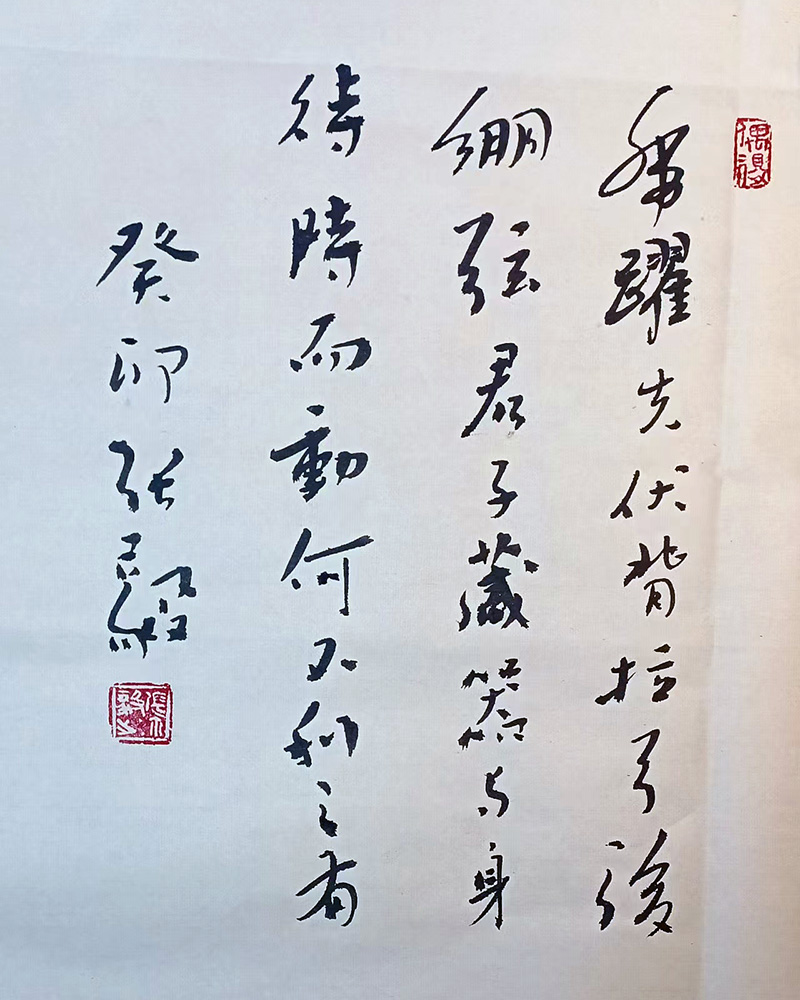 躍先伏背拉弓後
绷弦君子藏器与身
待時而動何不利之有
癸卯張毅